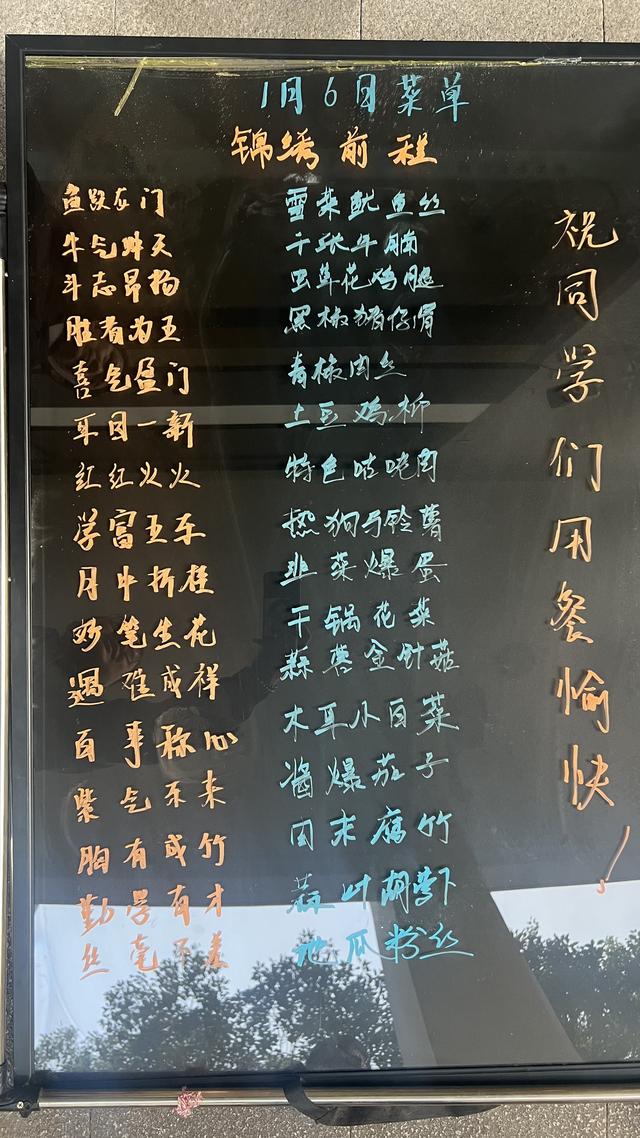 1月6日菜单
锦绣前程
鱼跃龙门 雪菜鱿鱼丝
牛气冲天 千张牛腩
斗志昂扬 虫草花鸡腿
胜者为王 黑椒猪仔骨
喜气盈门 青椒肉丝
耳目一新 土豆鸡柳
红红火火 特色咕咾肉
学富五车 热狗与铃薯
月中折桂 韭菜爆蛋
妙笔生花 干锅花菜
遇难成祥 蒜蓉金针菇
百事称心 木耳小白菜
紫气东来 酱爆茄子
胸有成竹 肉末腐竹
勤学有才 蒜叶胡萝卜
丝毫不差 地瓜粉丝
祝同学们用餐愉快！